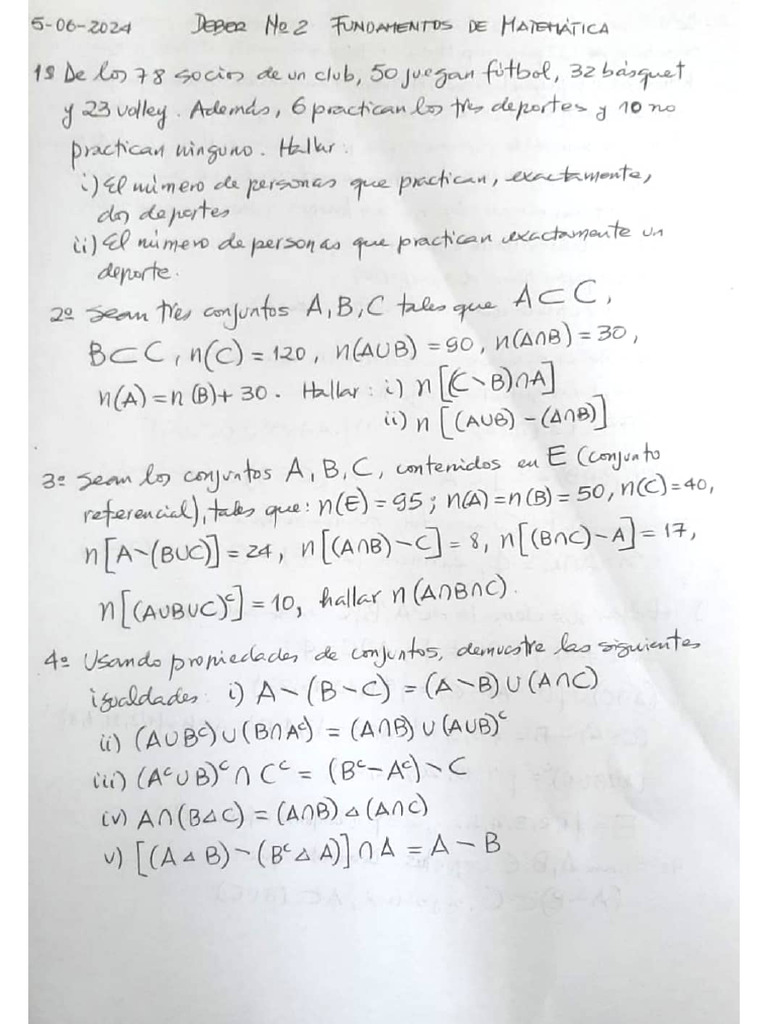 5-06-2024 DEBER No 2 FUNDAMENTOS DE MATEMÁTICA
1º De los 78 socios de un club, 50 juegan fútbol, 32 básquet
y 23 volley. Además, 6 practican los tres deportes y 10 no
practican ninguno. Hallar:
i) El número de personas que practican, exactamente,
dos deportes
ii) El número de personas que practican exactamente un
deporte.
2º Sean tres conjuntos A, B, C tales que A⊂C,
B⊂C, n(C) = 120, n(A∪B) = 90, n(A∩B) = 30,
n(A) = n(B) + 30. Hallar: i) n[(C∖B)∩A]
ii) n[(A∪B) - (A∩B)]
3º Sean los conjuntos A, B, C, contenidos en E (conjunto
referencial), tales que: n(E) = 95; n(A) = n(B) = 50, n(C) = 40,
n[A∖(B∪C)] = 24, n[(A∩B) - C] = 8, n[(B∩C) - A] = 17,
n[(A∪B∪C)ᶜ] = 10, hallar n(A∩B∩C).
4º Usando propiedades de conjuntos, demuestre las siguientes
igualdades: i) A∖(B∖C) = (A∖B)∪(A∩C)
ii) (A∪Bᶜ)∪(B∩Aᶜ) = (A∩B)∪(A∪B)ᶜ
iii) (Aᶜ∪B)ᶜ∩Cᶜ = (Bᶜ-Aᶜ)∖C
iv) A∩(B△C) = (A∩B)△(A∩C)
v) [(A△B)∖(Bᶜ△A)]∩A = A - B